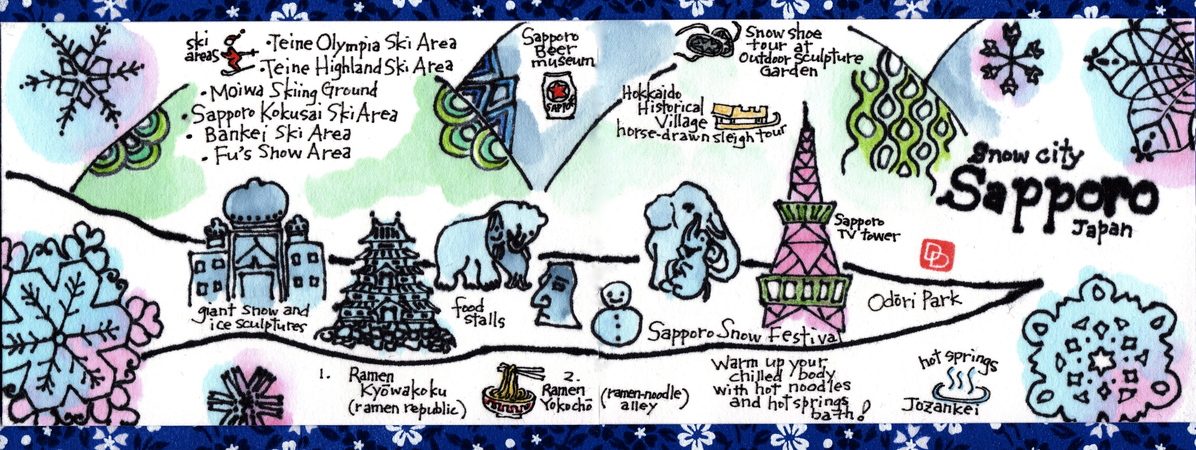 ski
areas
• Teine Olympia Ski Area
• Teine Highland Ski Area
• Moiwa Skiing Ground
• Sapporo Kokusai Ski Area
• Bankei Ski Area
• Fu's Snow Area
Sapporo
Beer
museum
Snow shoe
tour at
Outdoor Sculpture
Garden
Hokkaido
Historical
Village
horse-drawn sleigh tour
Snow city
Sapporo
Japan
Sapporo
TV tower
giant snow and
ice sculptures
food
stalls
Sapporo Snow Festival
Odōri Park
1. Ramen
Kyōwakoku
(ramen republic)
2.
Ramen
Yokochō
(ramen-noodle)
alley
Warm up your
chilled body
with hot noodles
and hot springs
bath!
hot springs
Jozankei